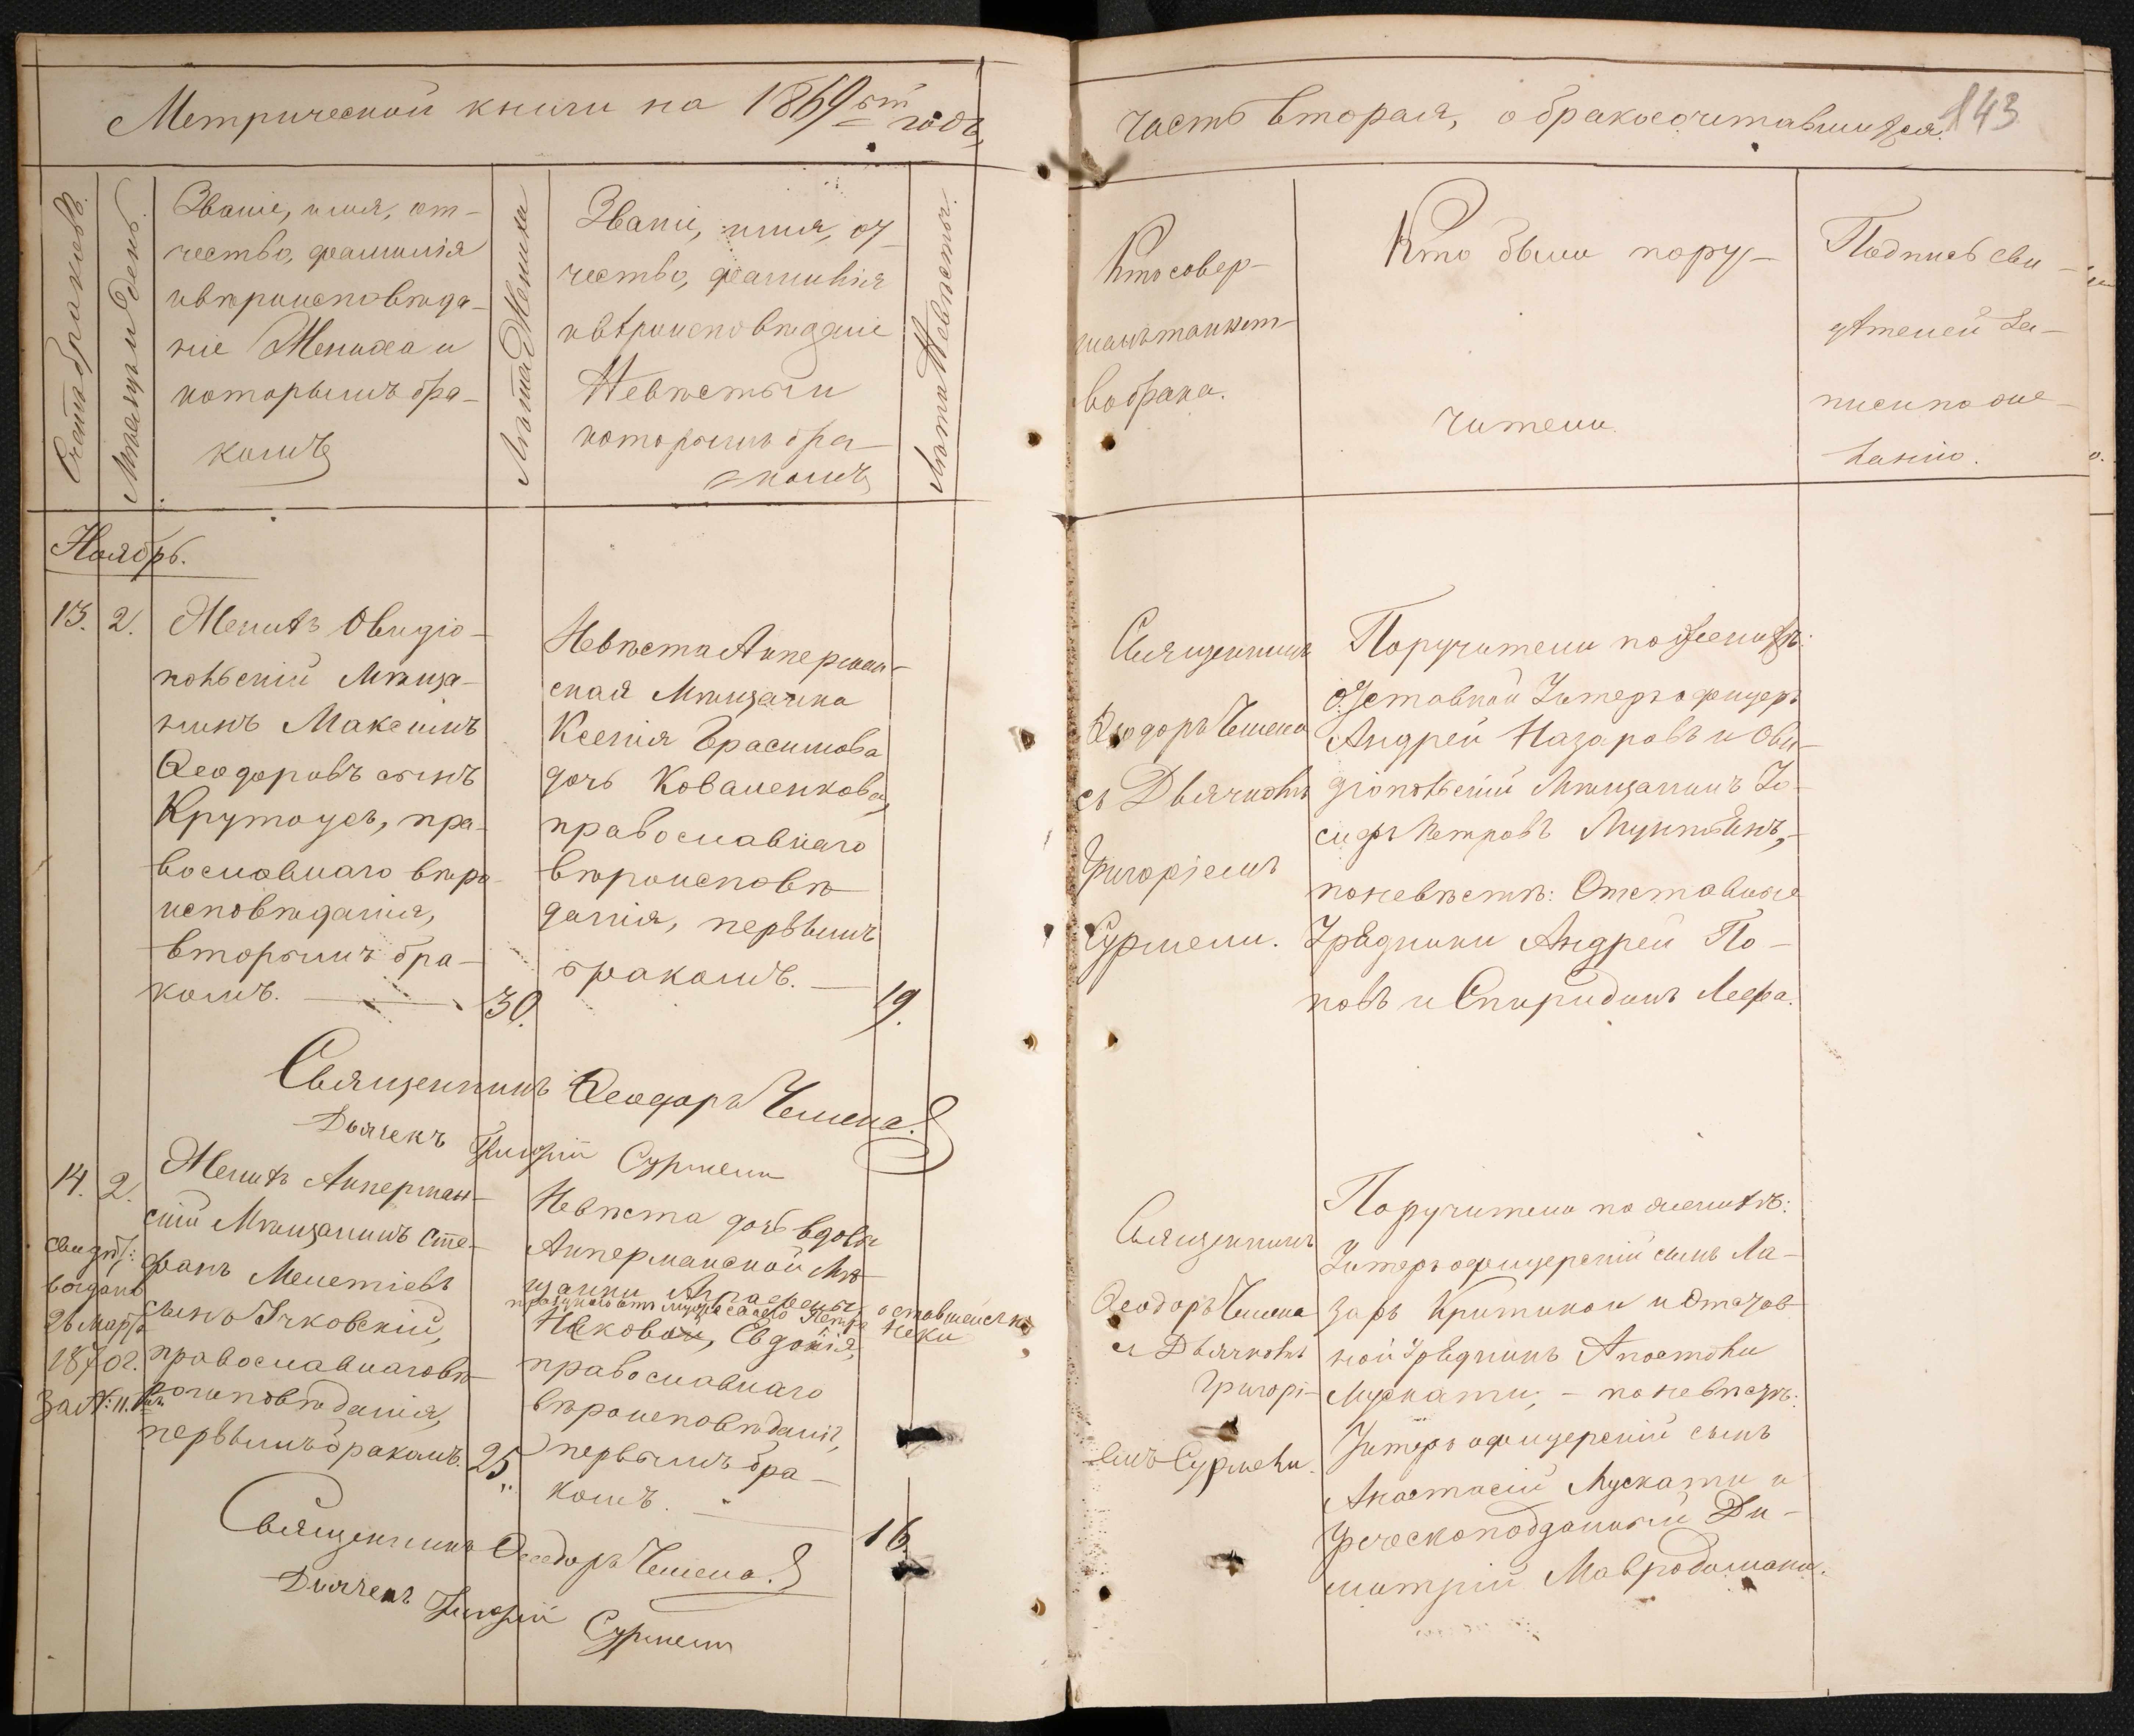 Метрической книги на 1869ый годъ
часть вторая, о бракосочетавшихся.
143
Счетъ браковъ.
Мѣсяцъ и день.
Званіе, имя, от-
чество, фамилія
и вѣроисповѣда-
ніе Жениха и
которымъ бра-
комъ
Лѣта Жениха
Званіе, имя, от-
чество, фамилія
и вѣроисповѣданіе
Невѣсты и
которымъ бра-
комъ
Лѣта Невѣсты.
Кто совер-
шалъ таинст-
во брака.
Кто были пору-
чители.
Подпись сви-
дѣтелей за-
писи по же-
ланію.
Ноябрь.
13. 2.
Женихъ Овидіо-
польскій Мѣща-
нинъ Максимъ
Ѳеодоровъ сынъ
Крутоусъ, пра-
вославнаго вѣро-
исповѣданія,
вторымъ бра-
комъ. — 30.
Невѣста Аккерман-
ская Мѣщанка
Ксенія Герасимова
дочь Коваленкова,
православнаго
вѣроисповѣ-
данія, первымъ
бракомъ. — 19.
Священникъ
Ѳеодоръ Чешена
съ Дьячкомъ
Григоріемъ
Сурмели.
Поручители по женихѣ:
отставной Унтеръ офицеръ
Андрей Назаровъ и Ови-
діопольскій Мѣщанинъ Іо-
сифъ Петровъ
по невѣстѣ: Отставные
Урядники Андрей По-
повъ и Спиридонъ Лефа.
Священникъ Ѳеодоръ Чешена.
Дьячекъ Григорій Сурмели
14. 2.
Свидѣт:
выдано
26 Марта
1870 г.
за №: 11.
Женихъ Аккерман-
скій Мѣщанинъ Сте-
фанъ Мелетіевъ
сынъ Ячковскій,
православнаго вѣ-
роисповѣданія,
первымъ бракомъ. 25.
Невѣста дочь вдовы
Аккерманской Мѣ-
щанки
оставшейся
Евдокія,
православнаго
вѣроисповѣданія,
первымъ бра-
комъ. — 16.
Священникъ
Ѳеодоръ Чешена
съ Дьячкомъ
Григорі-
емъ Сурмели.
Поручители по женихѣ:
Унтеръ офицерскій сынъ Ла-
зарь Критикои и Отстав-
ной Урядникъ Апостоли
Мускати; – по невѣстѣ:
Унтеръ офицерскій сынъ
Анастасій Мускати и
Греческоподданный Ди-
митрій Мавродомаки.
Священникъ Ѳеодоръ Чешена.
Дьячекъ Григорій Сурмели